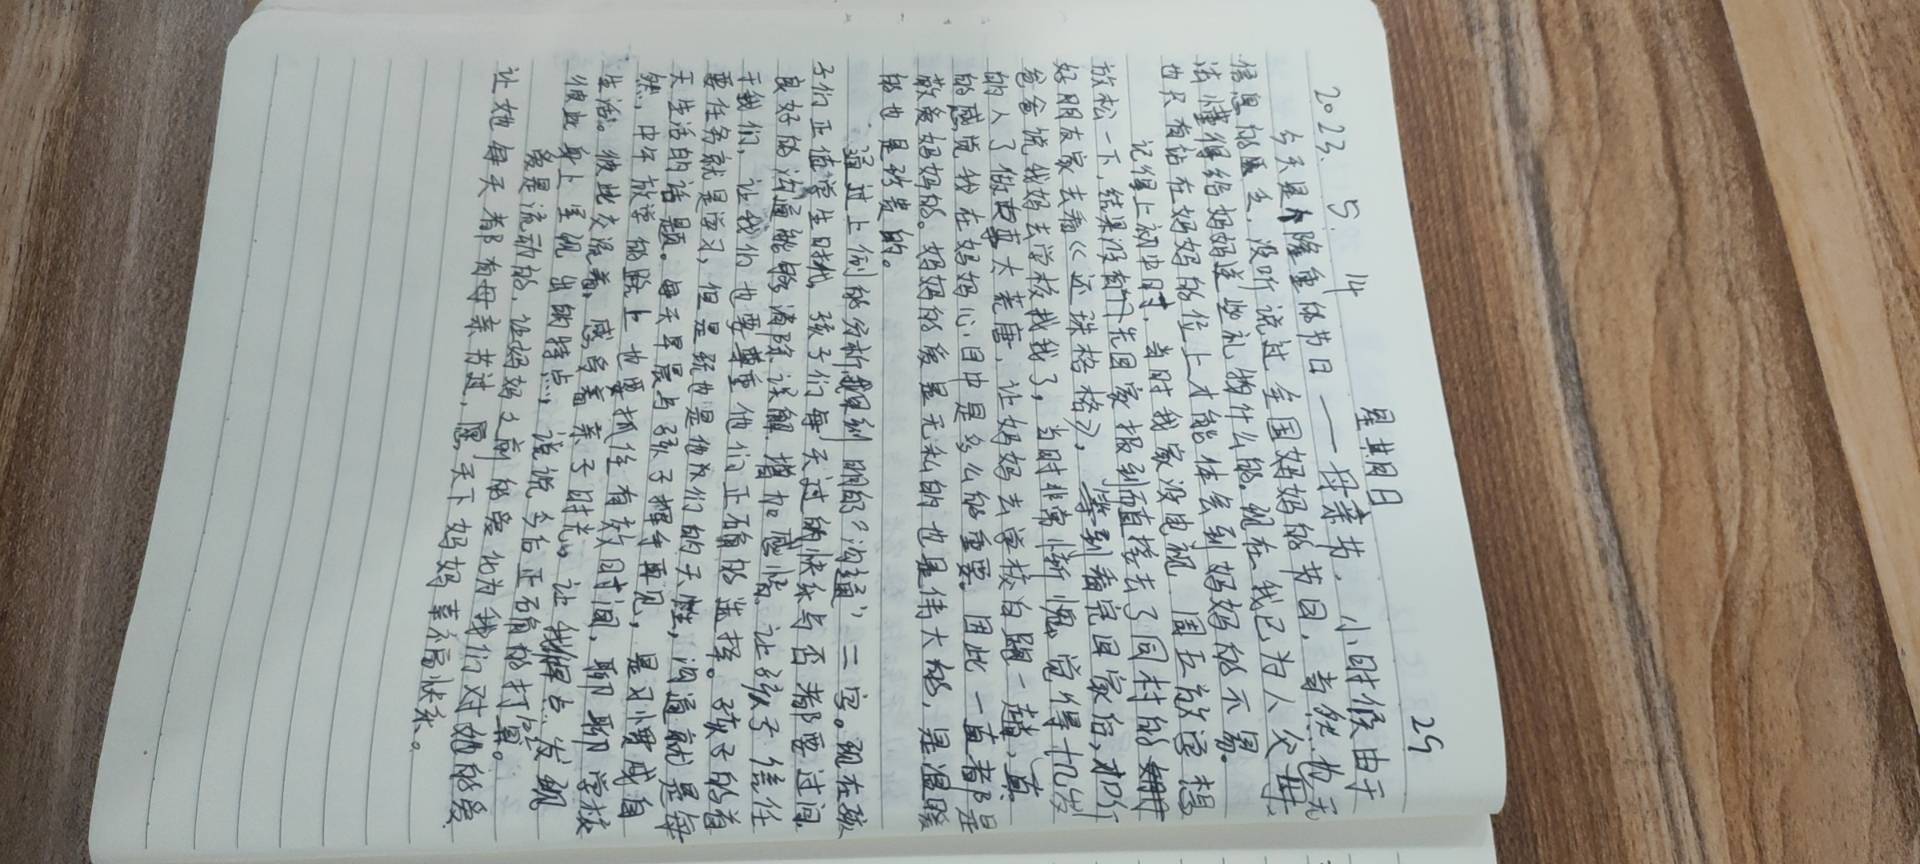 29
2023. 5. 14 星期日
今天是个隆重的节日——母亲节，小时候由于
信息闭塞，没听说过全国妈妈的节日，当然也无
法懂得给妈妈送些礼物什么的。现在我已为人父母
也只有站在妈妈的位上才能体会到妈妈的不易。
记得上初中时，当时我家没电视，周五放学想
放松一下，结果没有先回家报到而直接去了同村的
好朋友家去看《还珠格格》，等到看完回家后，才听
爸爸说我妈去学校找我了，当时非常惭愧，觉得十几岁
的人了做事大老唐，让妈妈去学校白跑一趟，真
的感觉我在妈妈心目中是多么的重要。因此一直都是
敬爱妈妈的。妈妈的爱是无私的也是伟大的，是温暖
的也是珍贵的。
通过上例的分析，我得到明的“沟通”二字。现在孩
子们正值学生时代，孩子们每天过的快乐与否都要过问
良好的沟通能够消除误解，增加感情。让孩子信任
于我们，让我们也要尊重他们正确的选择。孩子的首
要任务就是学习，但是玩也是他们的天性，沟通就是每
天生活的话题。每天早晨与孩子挥手再见，是习惯成自
然，中午放学的路上也要抓住有效时间，聊聊学校
生活。彼此交流着，感受着亲子时光。让我们发现
彼此身上呈现出的特点，说说今后正确的打算。
爱是流动的，让妈妈之前的爱化为我们对她的爱
让她每天都有母亲节过，愿天下妈妈幸福快乐。